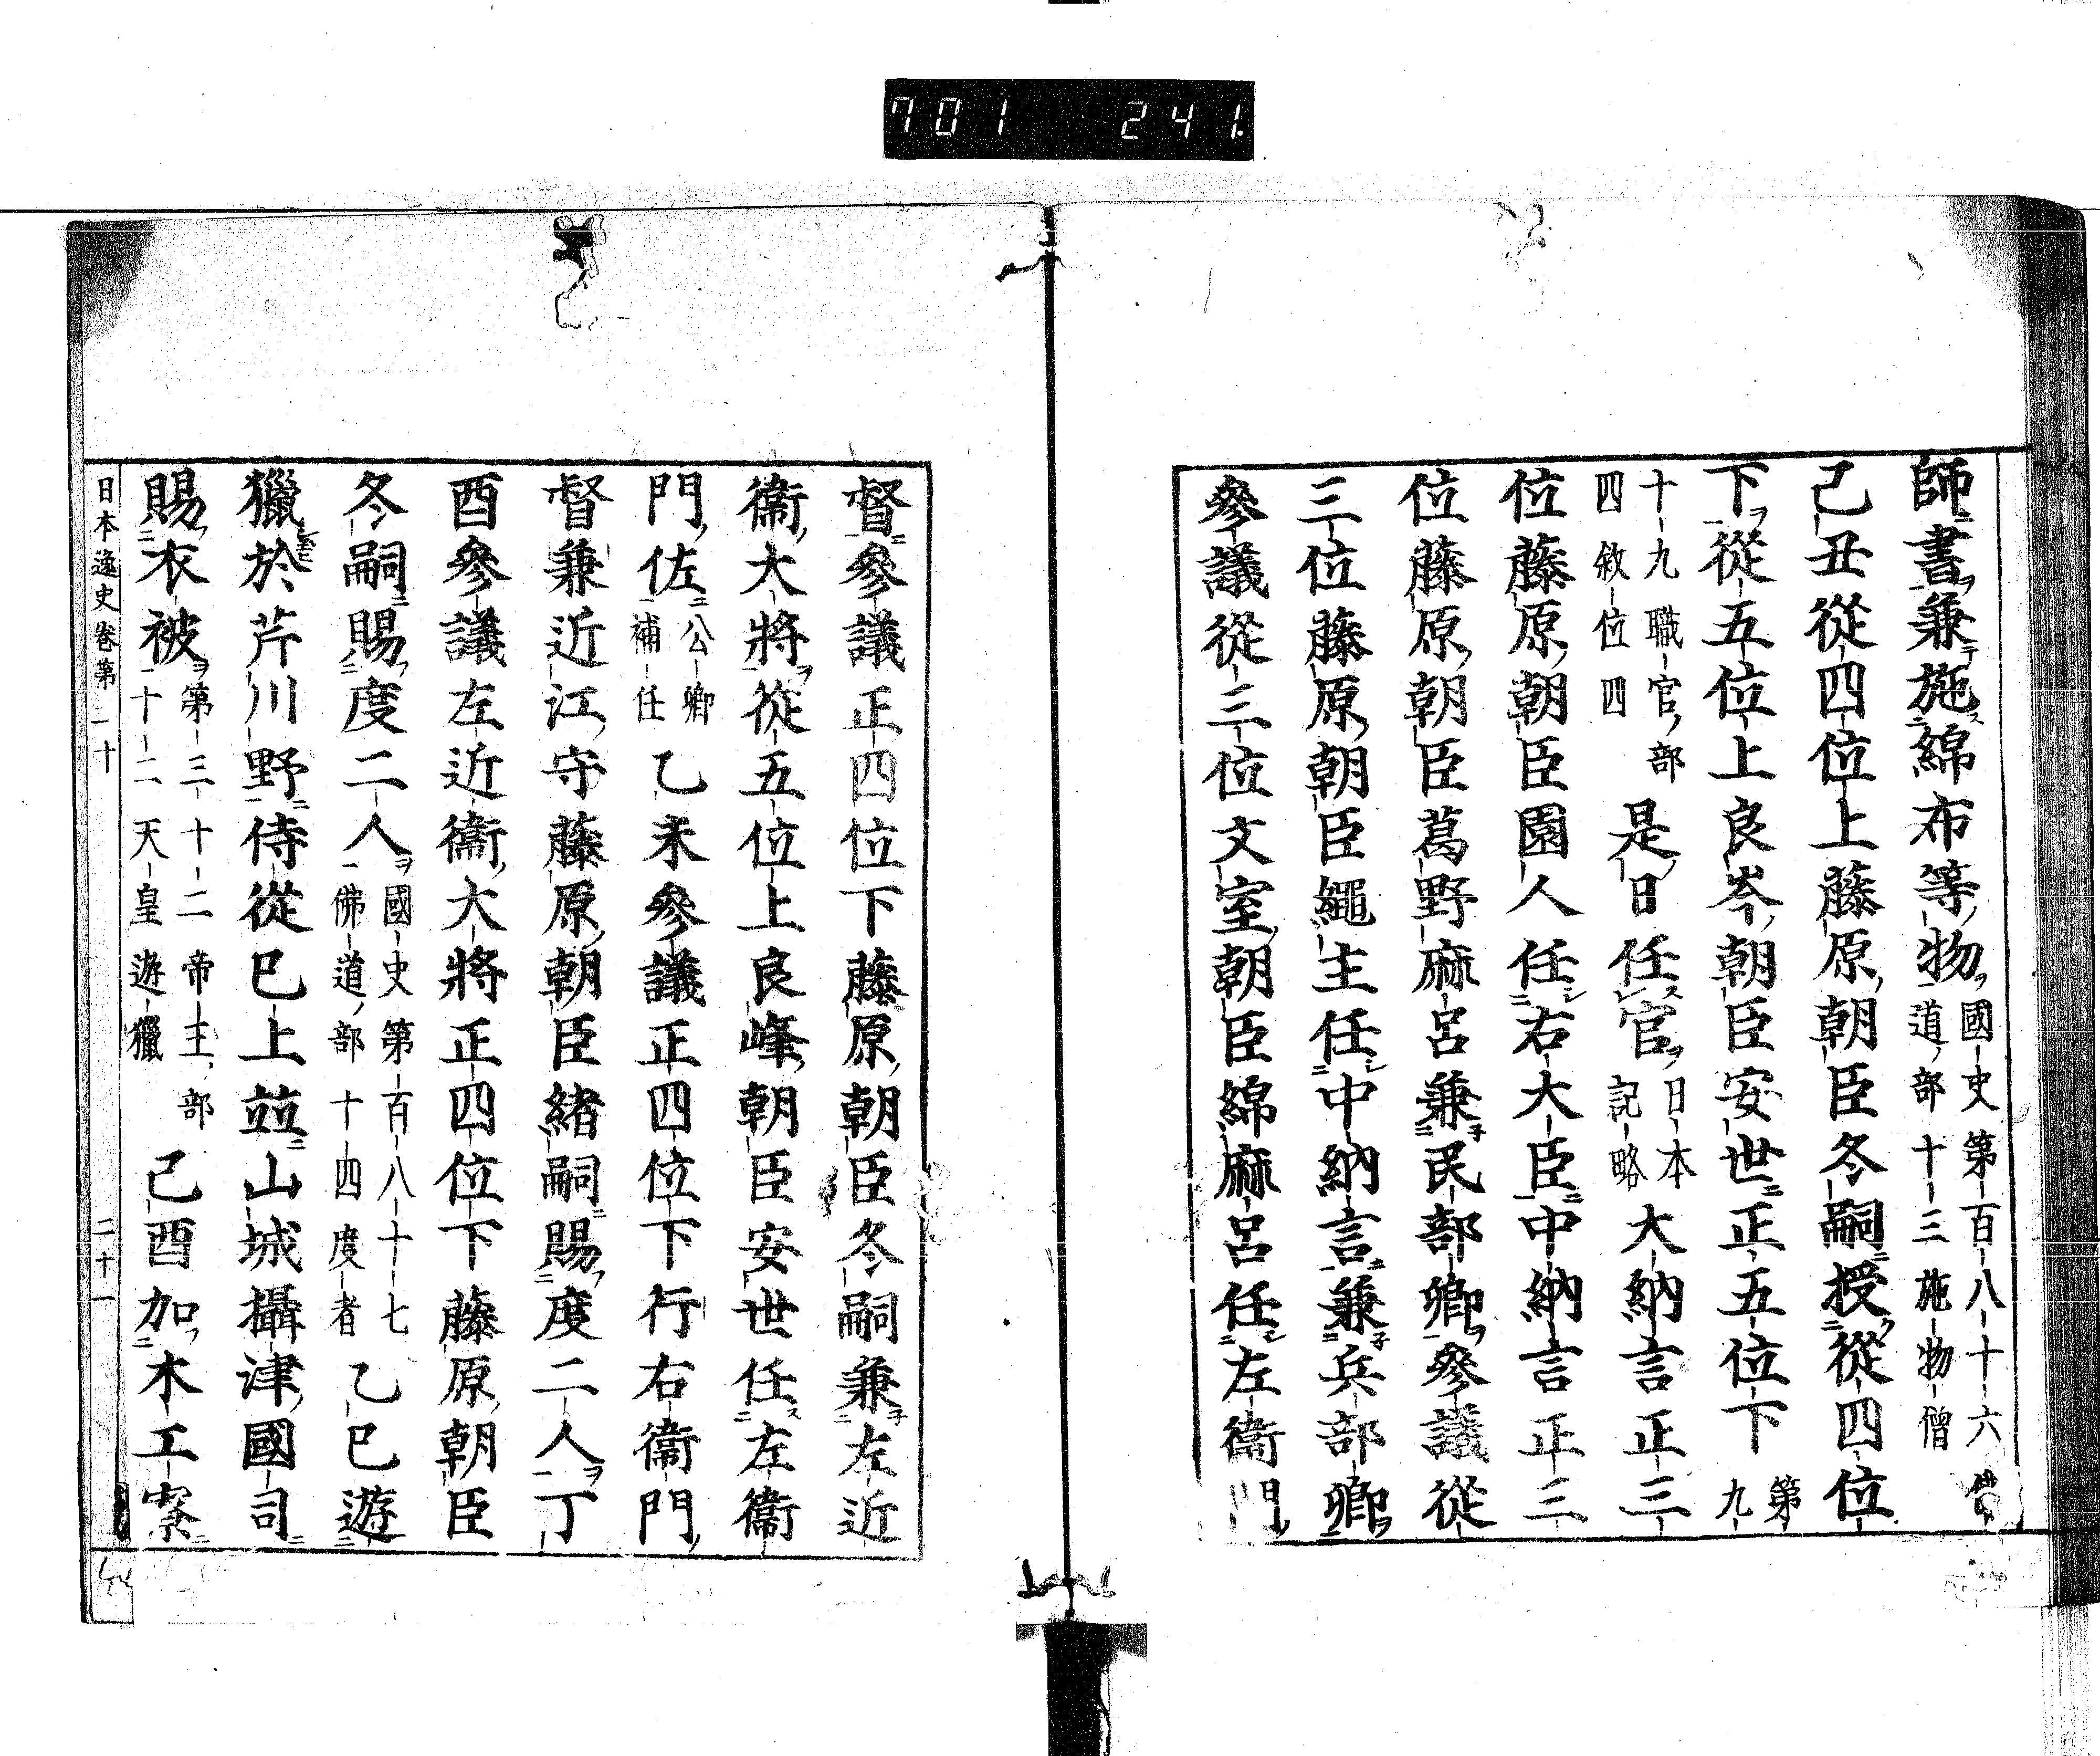 701 241.
師書兼施綿布等物國史第百八十六佛道部十三施物僧
己丑從四位上藤原朝臣冬嗣授從四位
下從五位上良岑朝臣安世正五位下第九
十九職官部四敘位四是日任官日本記略大納言正三
位藤原朝臣園人任右大臣中納言正三
位藤原朝臣葛野麻呂兼民部卿參議從
三位藤原朝臣繩主任中納言兼兵部卿
參議從三位文室朝臣綿麻呂任左衞門
督參議正四位下藤原朝臣冬嗣兼左近
衞大將從五位上良峰朝臣安世任左衞
門佐公卿補任乙未參議正四位下行右衞門
督兼近江守藤原朝臣緒嗣賜度二人丁
酉參議左近衞大將正四位下藤原朝臣
冬嗣賜度二人國史第百八十七佛道部十四度者乙巳遊
獵於芹川野侍從已上並山城攝津國司
賜衣被第三十二帝王部十二天皇遊獵己酉加木工寮
日本逸史卷第二十 二十一